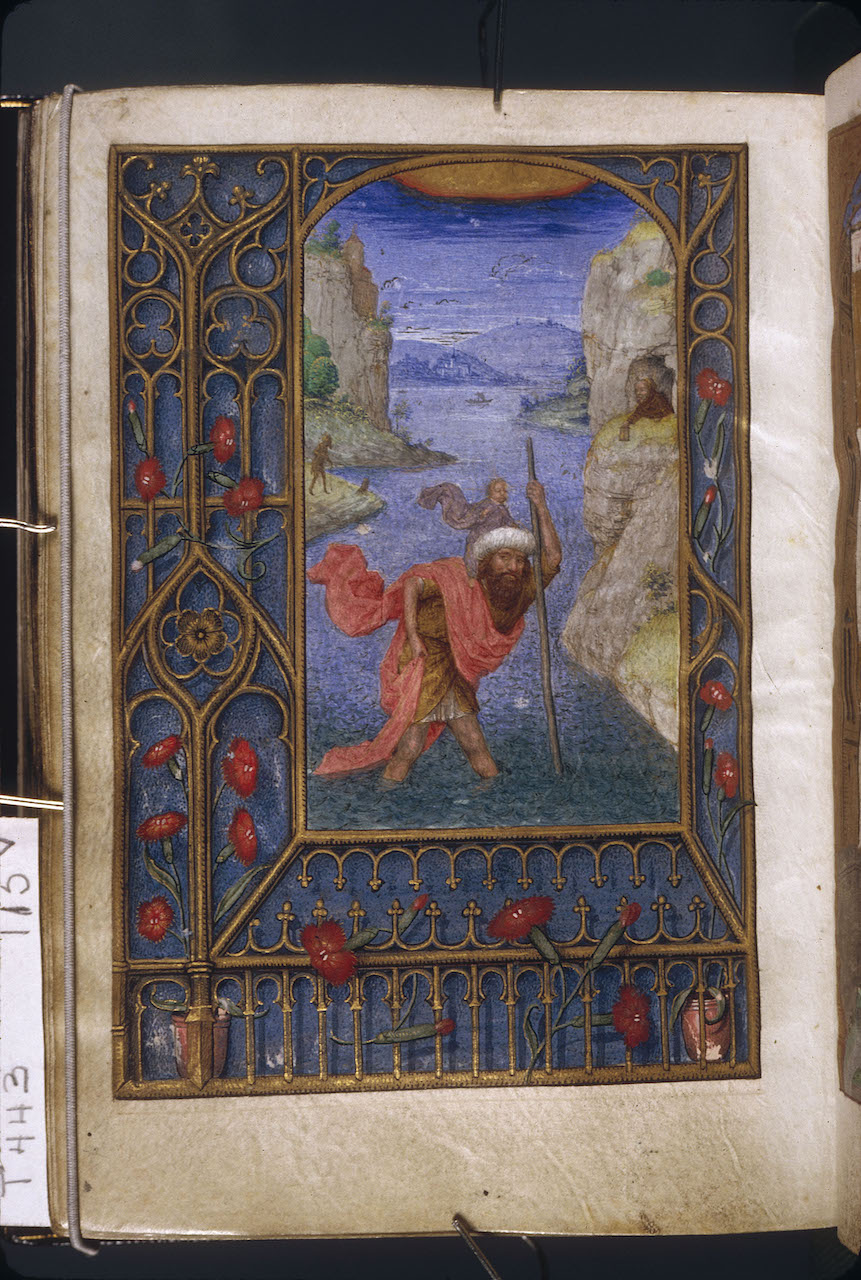 T 443 115V